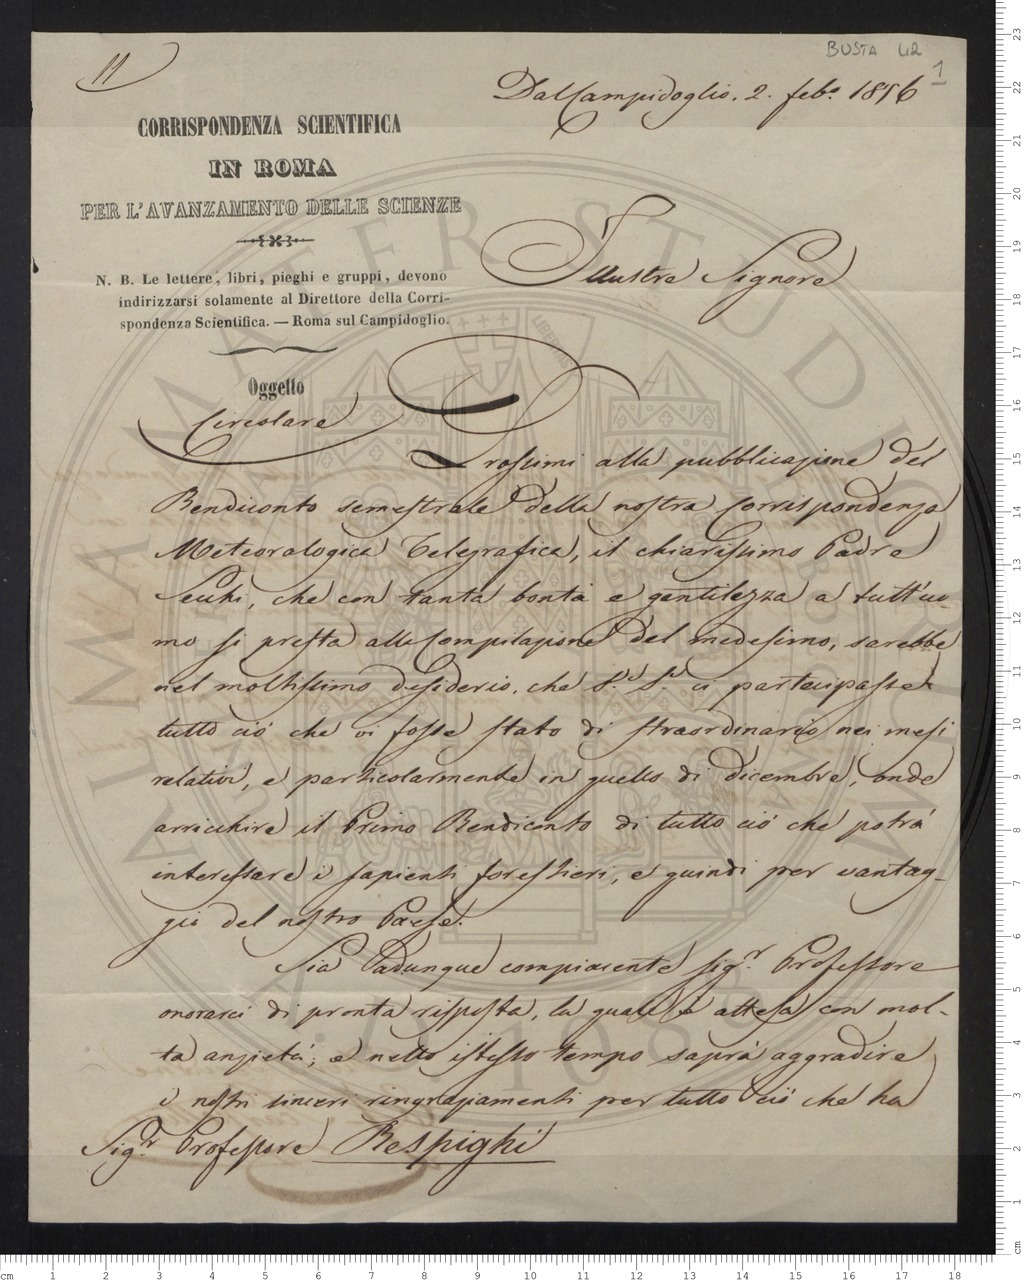 BUSTA 42
1
11
Dal Campidoglio. 2. feb.º 1856
CORRISPONDENZA SCIENTIFICA
IN ROMA
PER L'AVANZAMENTO DELLE SCIENZE
N. B. Le lettere, libri, pieghi e gruppi, devono
indirizzarsi solamente al Direttore della Corri-
spondenza Scientifica. — Roma sul Campidoglio.
Illustre Signore
Oggetto
Circolare
Prossimi alla pubblicazione del
Rendiconto semestrale della nostra Corrispondenza
Meteorologica Telegrafica, il chiarissimo Padre
Secchi, che con tanta bontà e gentilezza a tutt'uo-
mo si presta alla Compilazione del medesimo, sarebbe
nel moltissimo desiderio, che S. S. ci partecipasse
tutto ciò che vi fosse stato di straordinario nei mesi
relativi, e particolarmente in quello di dicembre, onde
arricchire il Primo Rendiconto di tutto ciò che potrà
interessare i sapienti forestieri, e quindi per vantag-
gio del nostro Paese.
Sia Ladunque compiacente Sig.r Professore
onorarci di pronta risposta, la quale è attesa con mol-
ta anzietà; e nello istesso tempo saprà aggradire
i nostri sinceri ringraziamenti per tutto ciò che ha
Sig.r Professore Respighi
ALMA MATER STUDIORUM
LIBERTAS
A.D. 1088